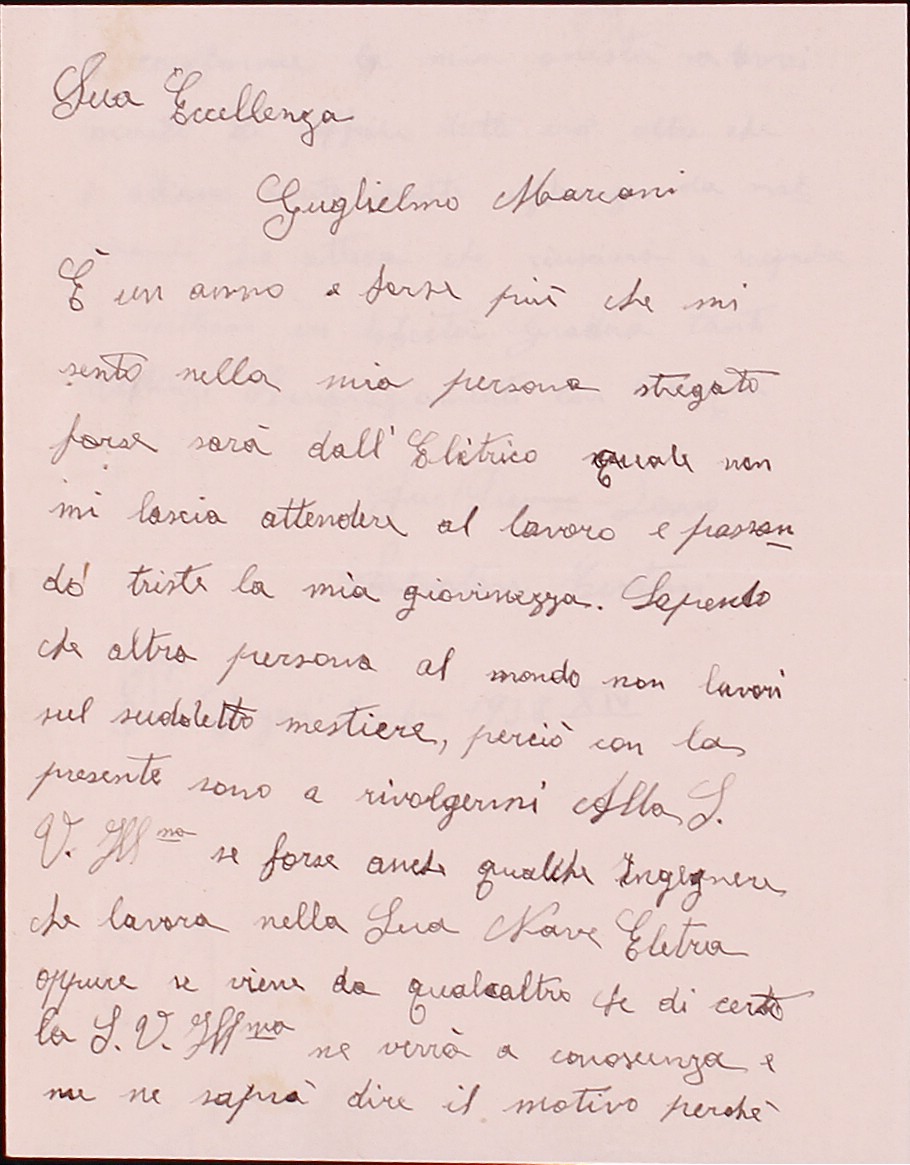 Sua Eccellenza
Guglielmo Marconi
È un anno e forse più che mi
sento nella mia persona stregato
forse sarà dall'Elètrico quale non
mi lascia attendere al lavoro e passan
do triste la mia giovinezza. Sapendo
che altra persona al mondo non lavori
sul sudoletto mestiere, perciò con la
presente sono a rivolgermi Alla S.
V. Ill ma se forse anche qualche Ingegnere
che lavora nella Sua Nave Eletra
oppure se viene da qualcaltro che di certo
la S. V. Ill ma ne verrà a conoscenza e
me ne saprà dire il motivo perchè